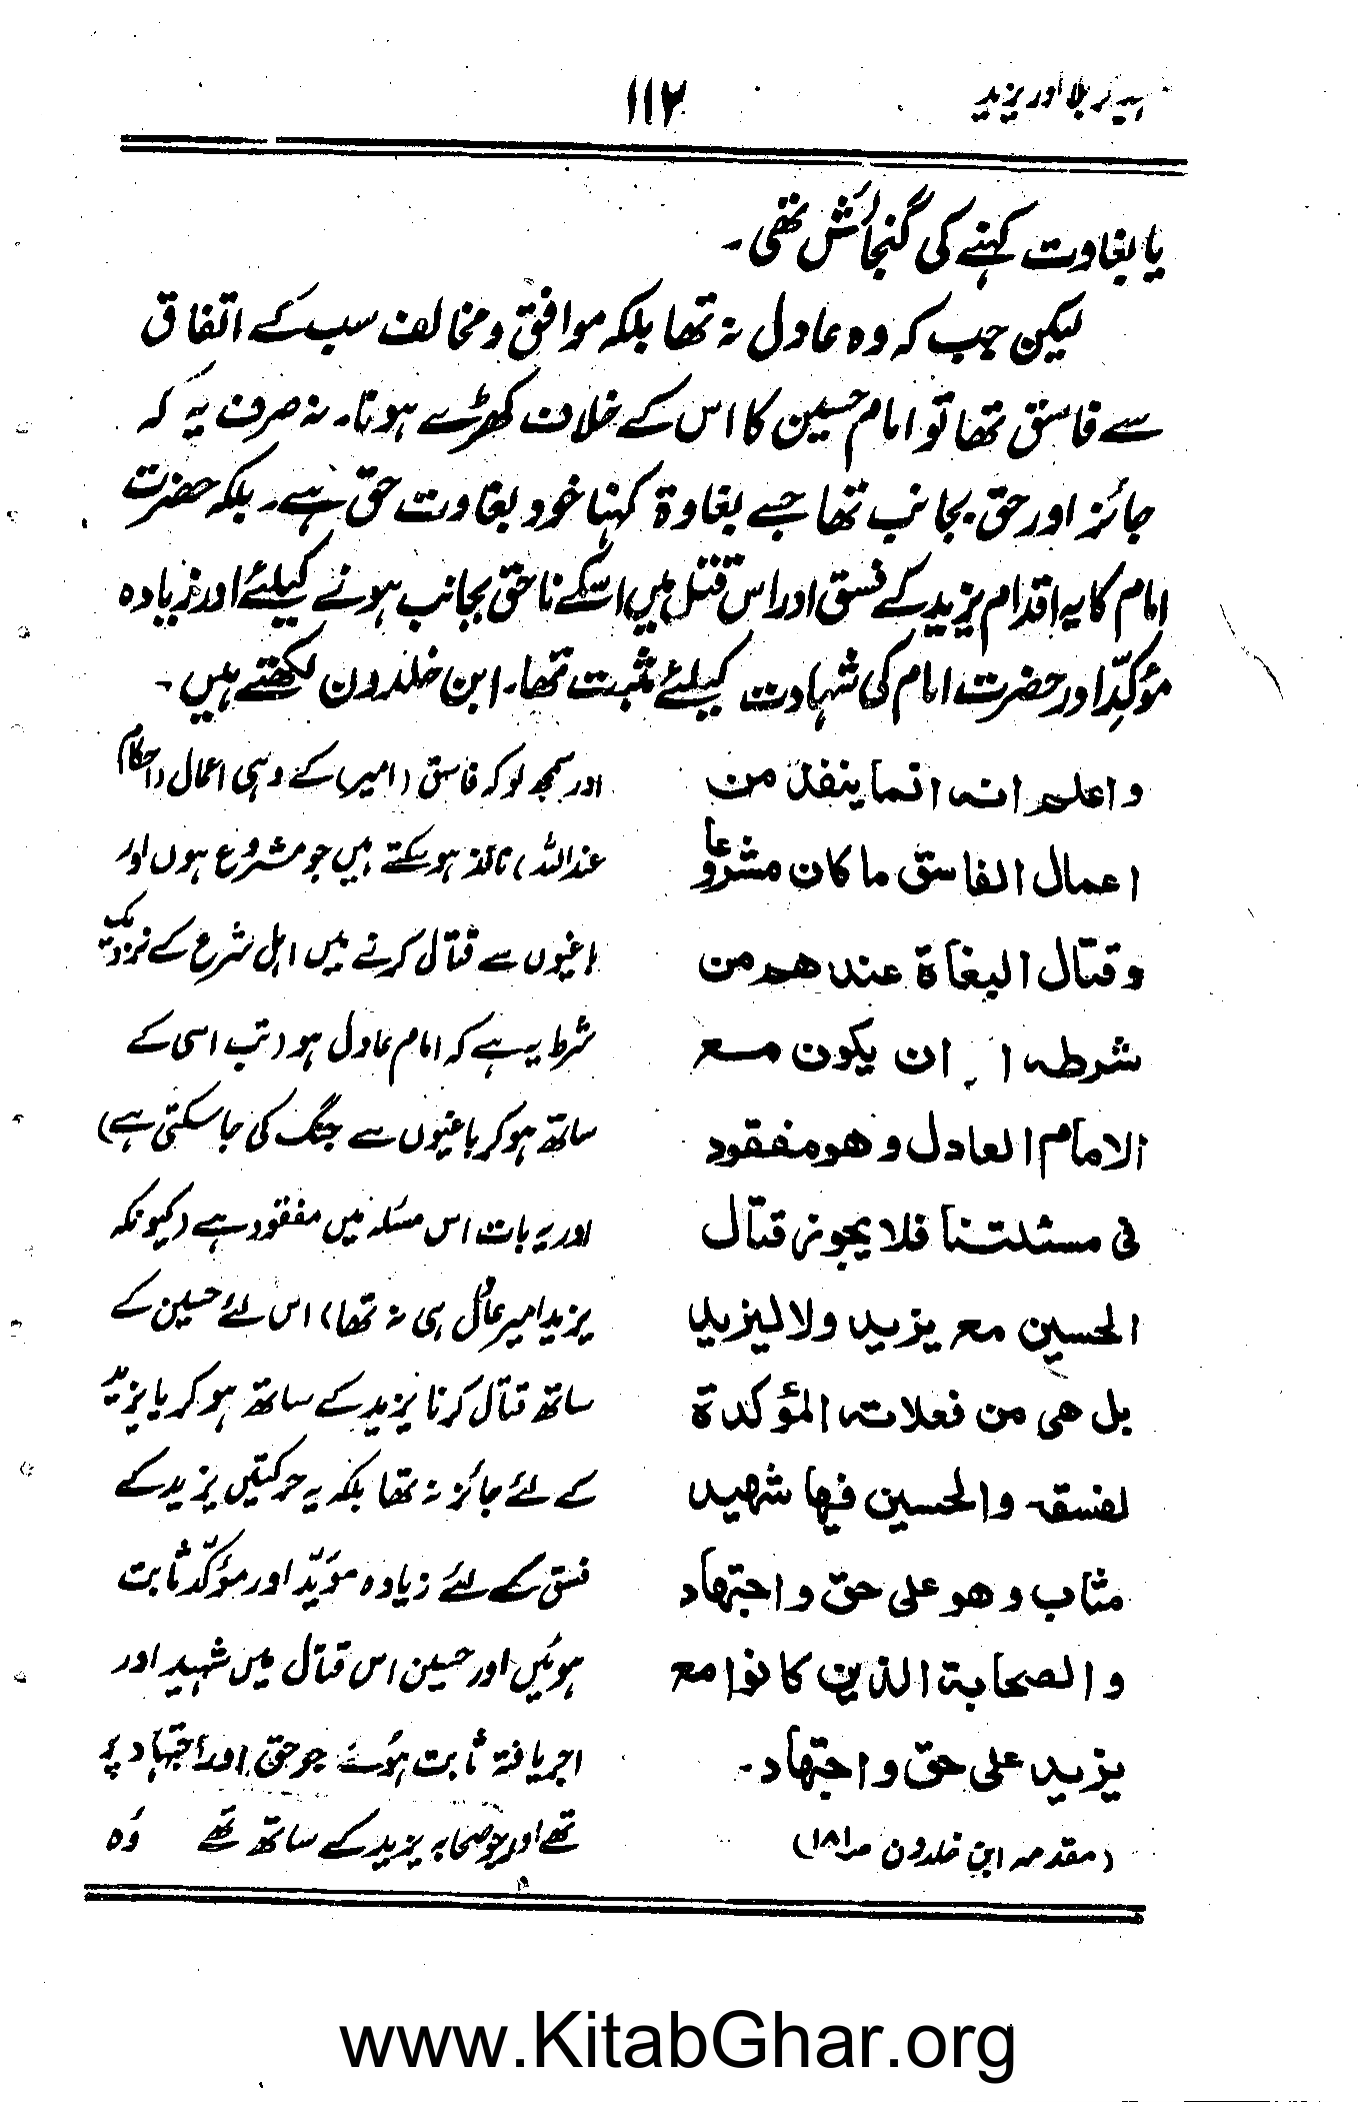 ۱۱۲
کربلا اور یزید
یا بغاوت کہنے کی گنجائش تھی۔
لیکن جب کہ وہ عادل نہ تھا بلکہ موافق و مخالف سب کے اتفاق
سے فاسق تھا تو امام حسین کا اس کے خلاف کھڑے ہونا۔ نہ صرف یہ کہ
جائز اور حق بجانب تھا جسے بغاوة کہنا خود بغاوت حق ہے۔ بلکہ حضرت
امام کا یہ اقدام یزید کے فسق اور اس قتل میں اسکے ناحق بجانب ہونے کیلئے اور زیادہ
مؤکدّ اور حضرت امام کی شہادت کیلئے مثبت تھا۔ ابن خلدون لکھتے ہیں۔
واعلم انه انما ینفذ من
اعمال الفاسق ما کان مشروعا
وقتال البغاة عندهم من
شرطه ان یکون مع
الامام العادل وهو مفقود
فی مسئلتنا فلا یجوز قتال
الحسین مع یزید ولا لیزید
بل هی من فعلاته المؤکدة
لفسقه والحسین فیها شهید
مثاب وهو علی حق واجتهاد
والصحابة الذین کانوا مع
یزید علی حق واجتهاد۔
(مقدمہ ابن خلدون صـ۱۸۱)
اور سمجھ لو کہ فاسق (امیر) کے وہی اعمال (احکام)
عنداللہ) نافذ ہو سکتے ہیں جو مشروع ہوں اور
باغیوں سے قتال کرنے میں اہل شرع کے نزدیک
شرط یہ ہے کہ امام عادل ہو (تب اسی کے
ساتھ ہو کر باغیوں سے جنگ کی جا سکتی ہے)
اور یہ بات اس مسئلہ میں مفقود ہے (کیونکہ
یزید امیر عادل ہی نہ تھا) اس لئے حسین کے
ساتھ قتال کرنا یزید کے ساتھ ہو کر یا یزید
کے لئے جائز نہ تھا بلکہ یہ حرکتیں یزید کے
فسق کے لئے زیادہ مؤیّد اور مؤکّد ثابت
ہوئیں اور حسین اس قتال میں شہید اور
اجر یافتہ ثابت ہوئے جو حق اور اجتہاد پر
تھے اور جو صحابہ یزید کے ساتھ تھے وُہ
www.KitabGhar.org